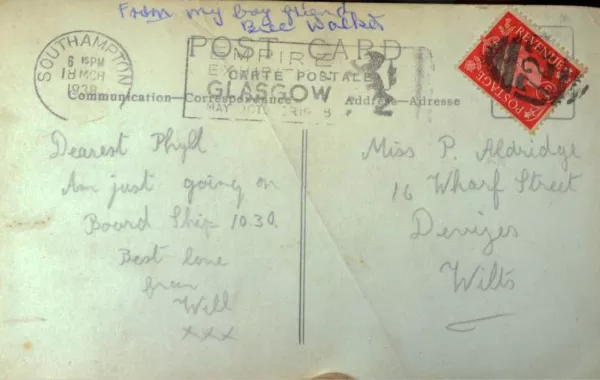 From my boy friend
Bill Walker
POST CARD
CARTE POSTALE
Communication—Correspondance
Address—Adresse
SOUTHAMPTON
6 15PM
18 MCH
1938
EMPIRE
GLASGOW
MAY
POSTAGE
REVENUE
Dearest Phyll
Am just going on
Board Ship 10.30.
Best love
from
Will
xxx
Miss P. Aldridge
16 Wharf Street
Devizes
Wilts